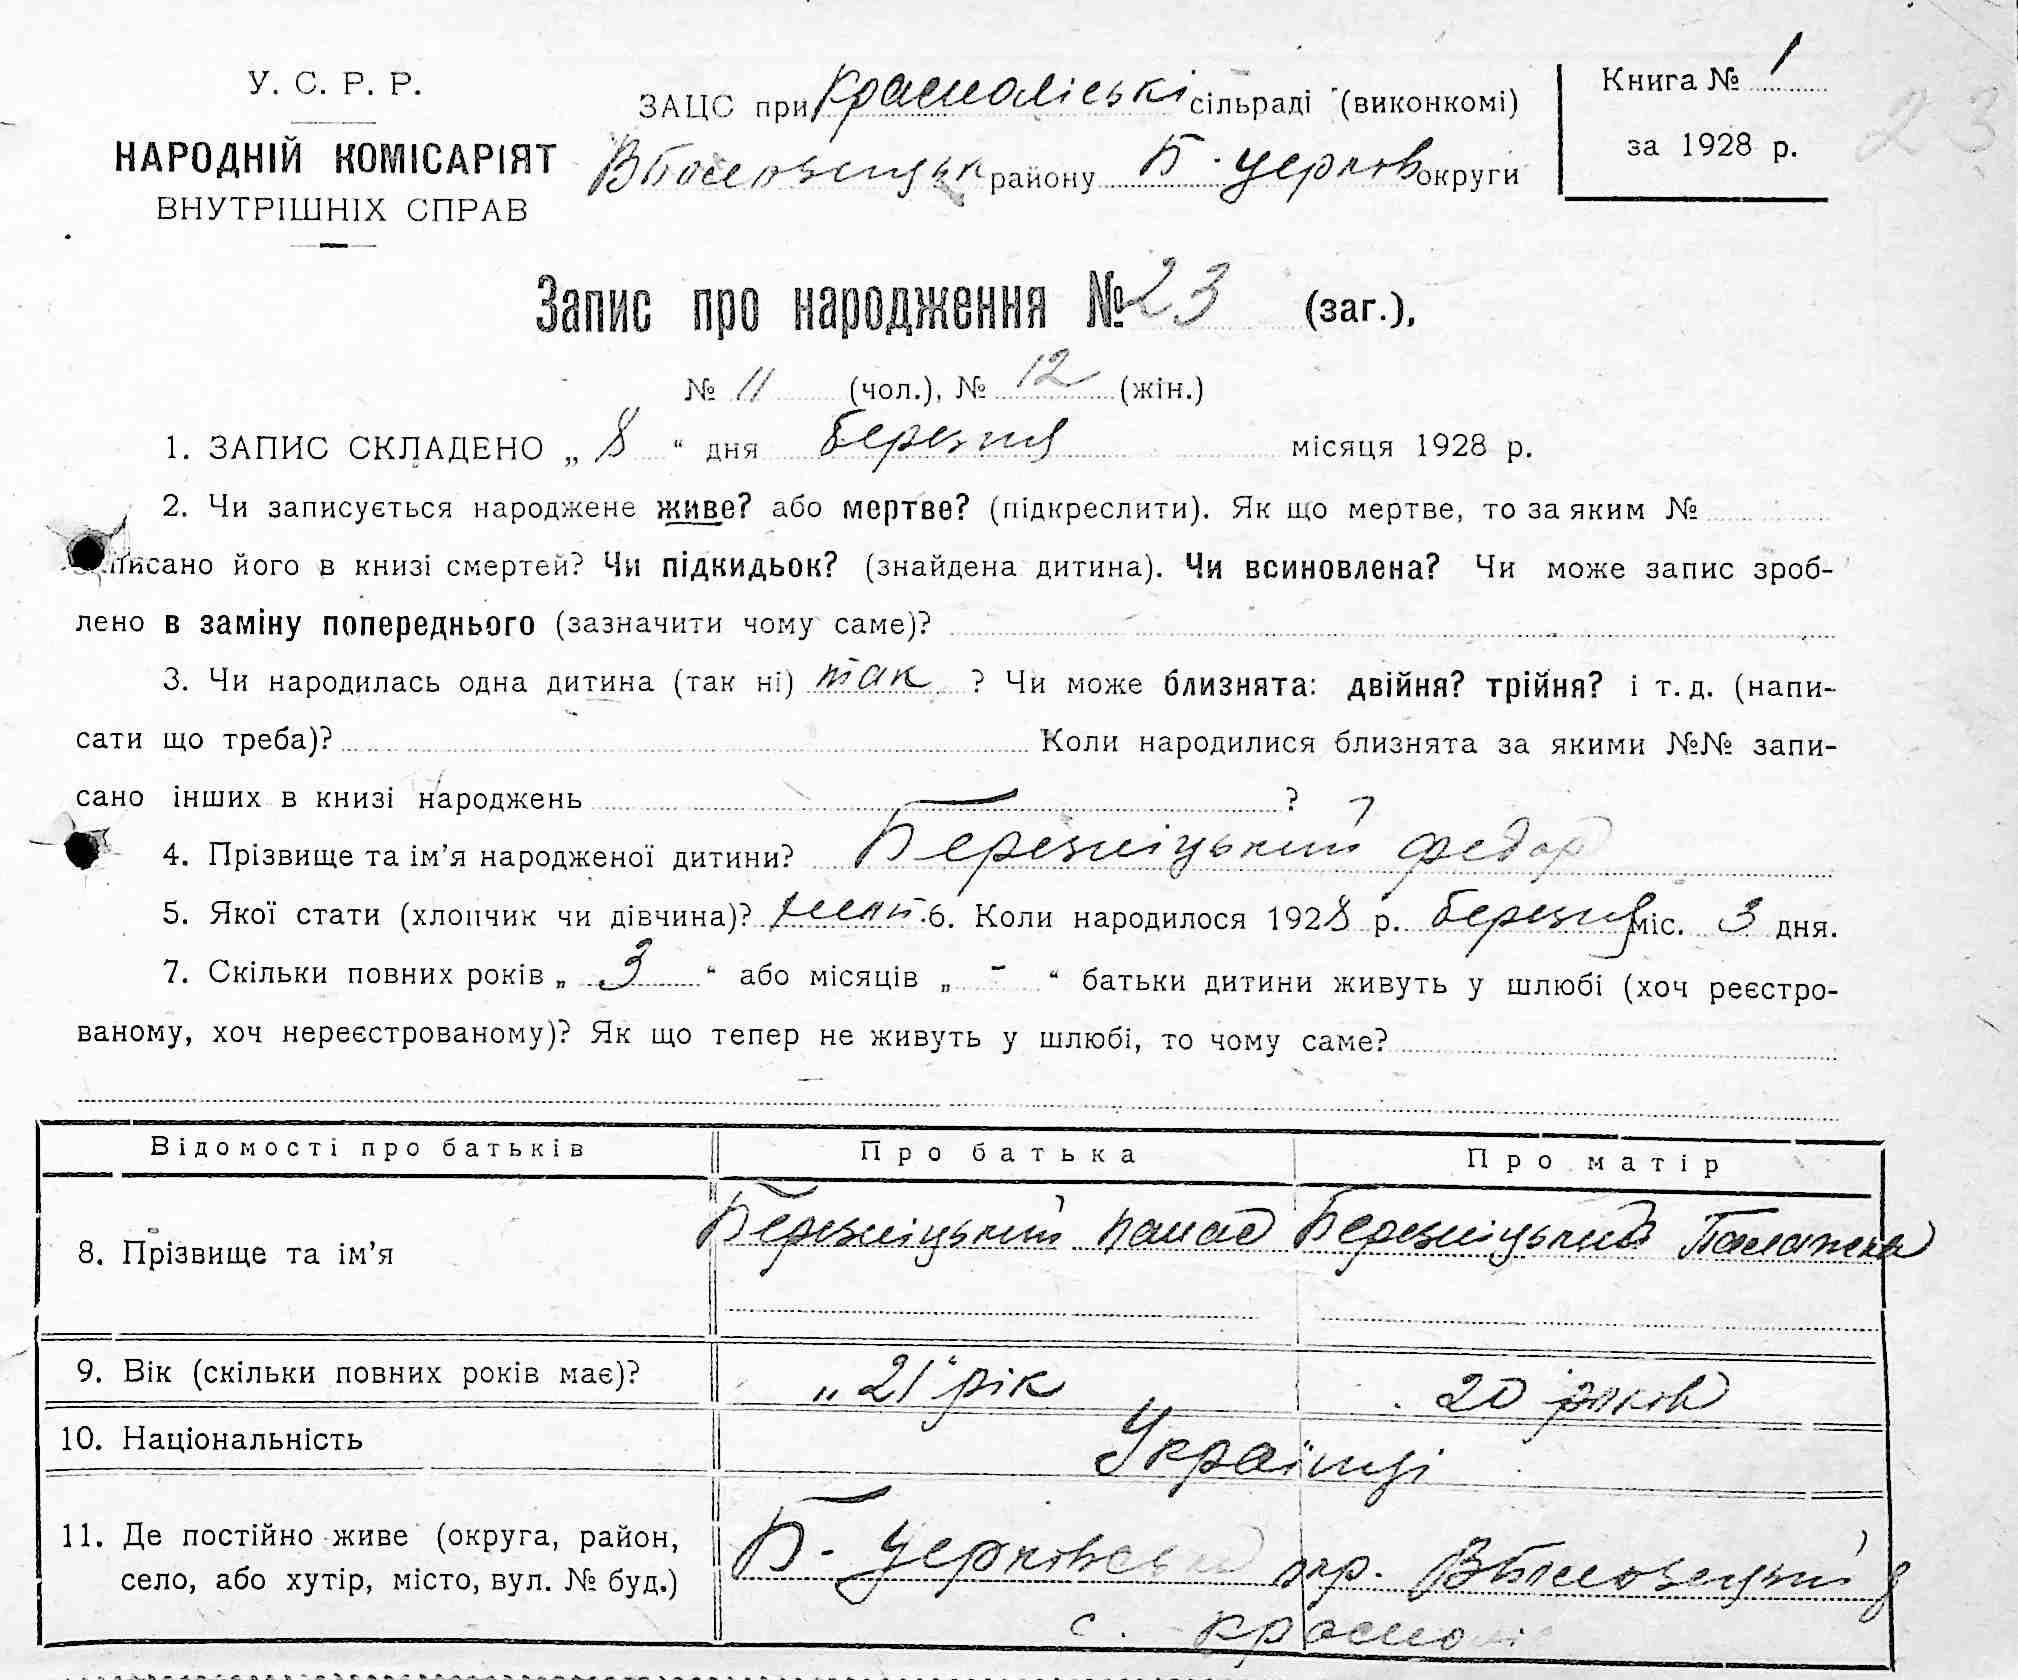 У. С. Р. Р.
НАРОДНІЙ КОМІСАРІЯТ
ВНУТРІШНІХ СПРАВ
ЗАЦС при Красноліські сільраді (виконкомі)
району Б. Церков округи
Книга № 1
за 1928 р.
23
Запис про народження № 23 (заг.),
№ 11 (чол.), № 12 (жін.)
1. ЗАПИС СКЛАДЕНО „ 8 “ дня березня місяця 1928 р.
2. Чи записується народжене живе? або мертве? (підкреслити). Як що мертве, то за яким №
записано його в книзі смертей? Чи підкидьок? (знайдена дитина). Чи всиновлена? Чи може запис зроб-
лено в заміну попереднього (зазначити чому саме)?
3. Чи народилась одна дитина (так ні) так ? Чи може близнята: двійня? трійня? і т. д. (напи-
сати що треба)? Коли народилися близнята за якими №№ запи-
сано інших в книзі народжень ?
4. Прізвище та ім’я народженої дитини? Березніцький Федор
5. Якої стати (хлопчик чи дівчина)? 6. Коли народилося 1928 р. березня міс. 3 дня.
7. Скільки повних років „ 3 “ або місяців „ - “ батьки дитини живуть у шлюбі (хоч реєстро-
ваному, хоч нереєстрованому)? Як що тепер не живуть у шлюбі, то чому саме?
Відомості про батьків Про батька Про матір
8. Прізвище та ім’я Березніцький Панас Березніцька Палажка
9. Вік (скільки повних років має)? „21“ рік 20 років
10. Національність Українці
11. Де постійно живе (округа, район,
село, або хутір, місто, вул. № буд.)
Б. Церковська окр.
с. Красноліс